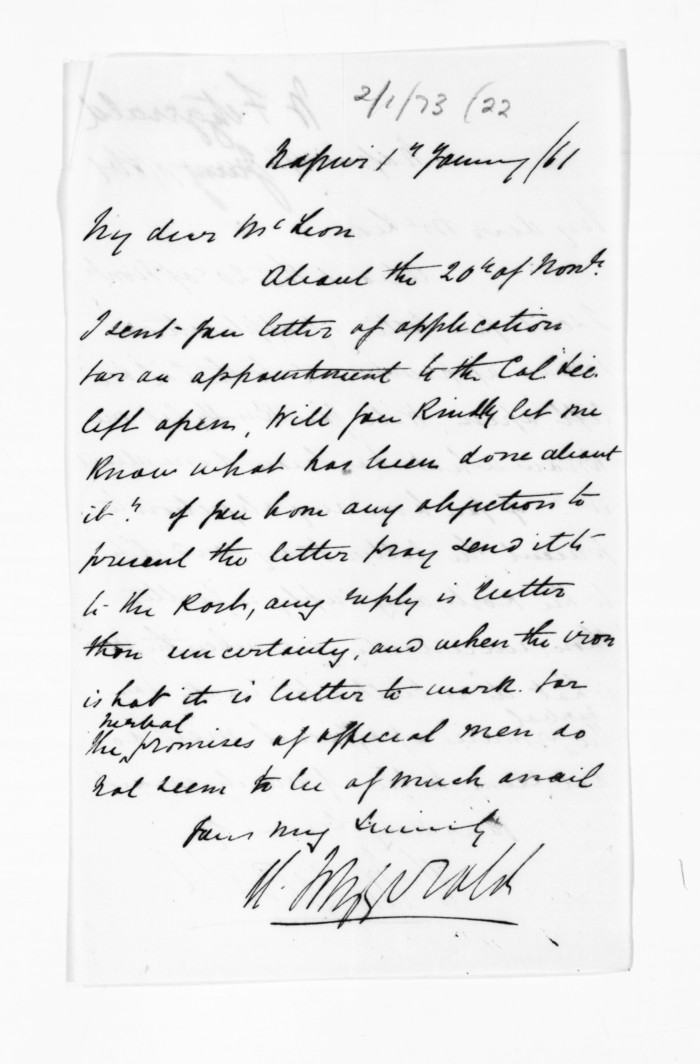 2/1/73 (22
Napier 1st January /61
My dear McLean
About the 20th of Novr.
I sent you letter of application
for an appointment to the Col. Sec.
left open, Will you Kindly let me
Know what has been done about
it? if you have any objection to
present the letter pray send it to
to the Post, any reply is better
than uncertainty, and when the iron
is hot it is better to work. for
the verbal promises of official men do
not seem to be of much avail
Yours very Sincerely
Fitzgerald